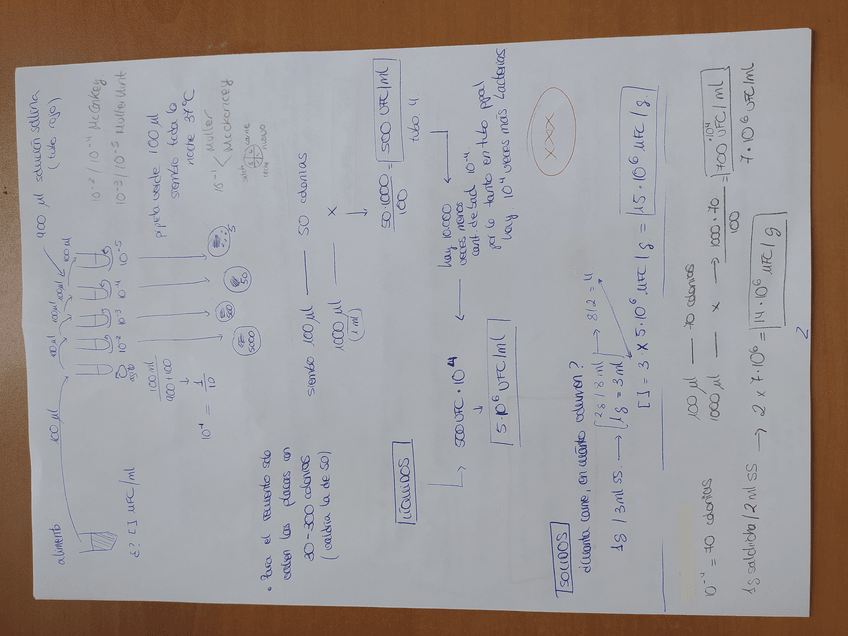 alimento
100 µl
100 µl
100 µl
100 µl
100 µl
900 µl solución salina
(tubo rojo)
¿? [] UFC/ml
10⁻²
10⁻³
10⁻⁴
10⁻⁵
10⁻²/10⁻⁴ McConkey
10⁻³/10⁻⁵ Müller Hint
100 ml
900+100
10⁻¹ = 1/10
5000
500
50
5
pipeta verde 100 µl
siembro toda la
noche 37ºC
10⁻¹ < Müller
Mackonkey
carne
huevo
• Para el recuento solo
valen las placas con
30-300 colonias
(valdría la de 50)
siembro 100 µl — 50 colonias
1000 µl — x
(1 ml)
50·1000/100 = 500 UFC/ml
tubo 4
LÍQUIDOS
500 UFC · 10⁴
5·10⁶ UFC/ml
hay 10.000
veces menos
cant de bact 10⁻⁴
por lo tanto en tubo ppal
hay 10⁴ veces más bacterias
XXX
SOLIDOS
¿cuánta carne, en cuánto volumen?
1g / 3ml SS → [2g / 8ml → 8/2 = 4
[1g = 3ml
[] = 3 x 5·10⁶ UFC/g = 15·10⁶ UFC/g
10⁻⁴ = 70 colonias
100 µl — 70 colonias
1000 µl — x → 1000·70/100 = 700·10⁴ UFC/ml
7·10⁶ UFC/ml
1g salchicha/2ml SS → 2 x 7·10⁶ = 14·10⁶ UFC/g
2